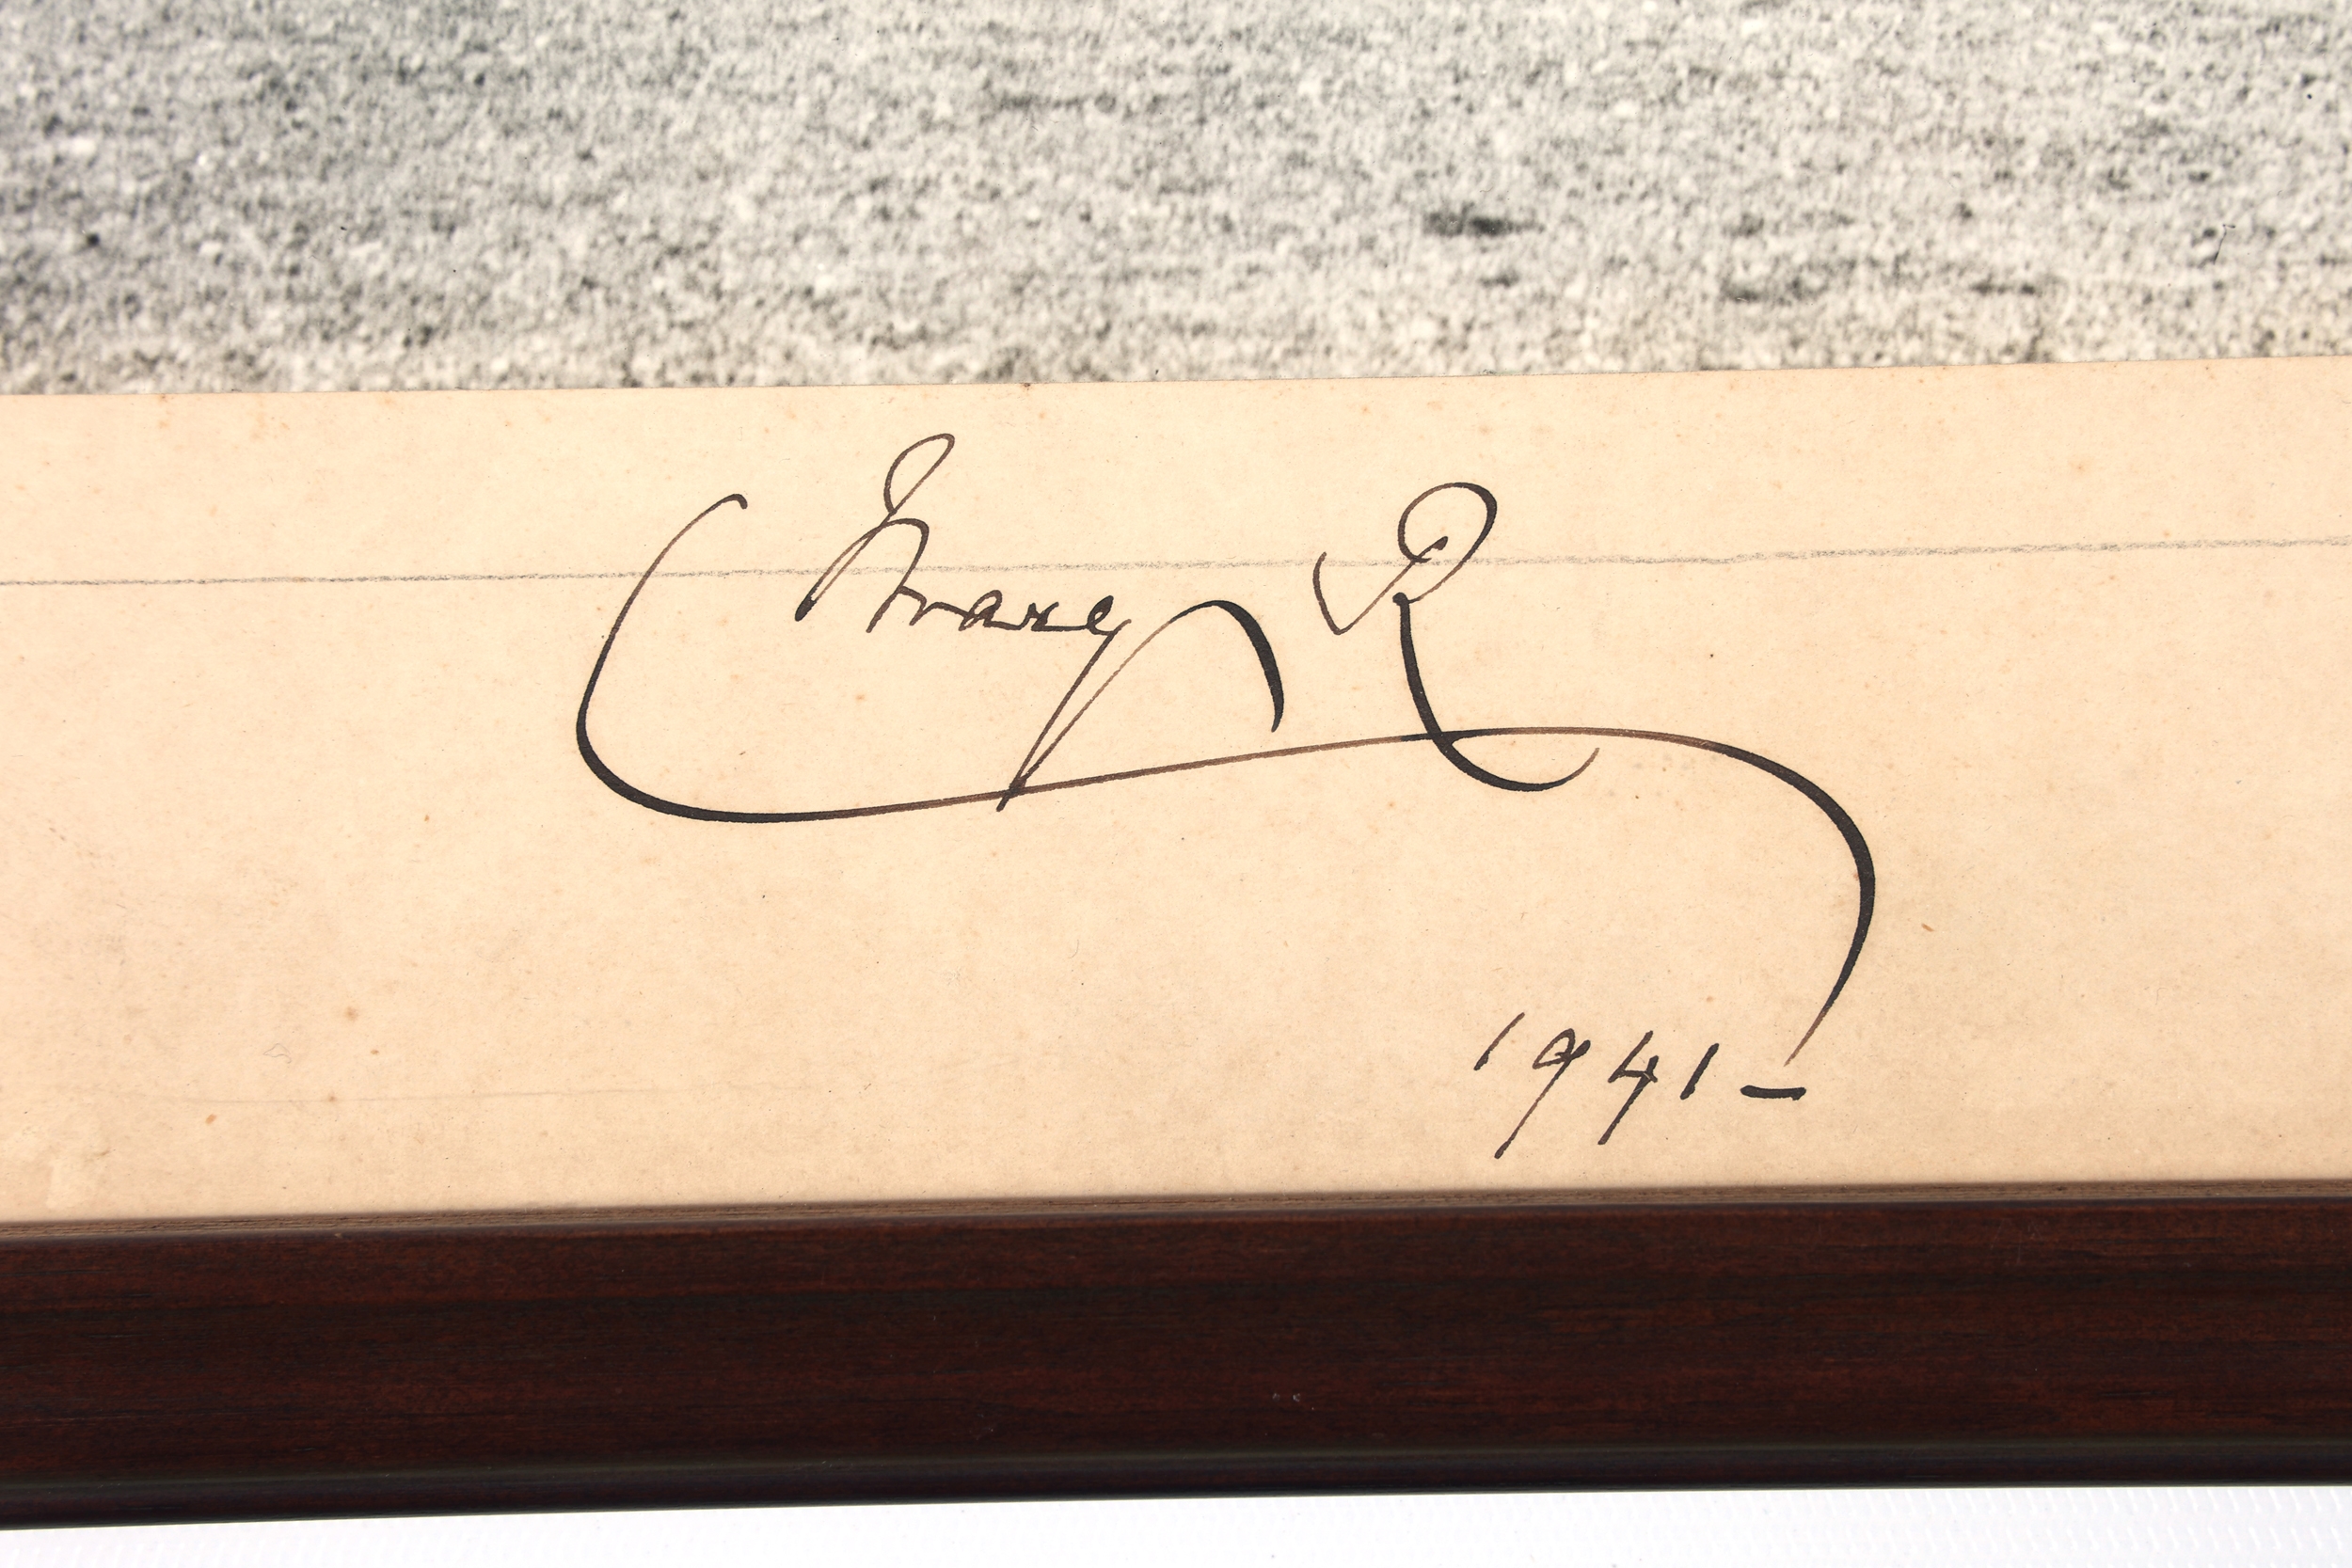 Mary R
1941-